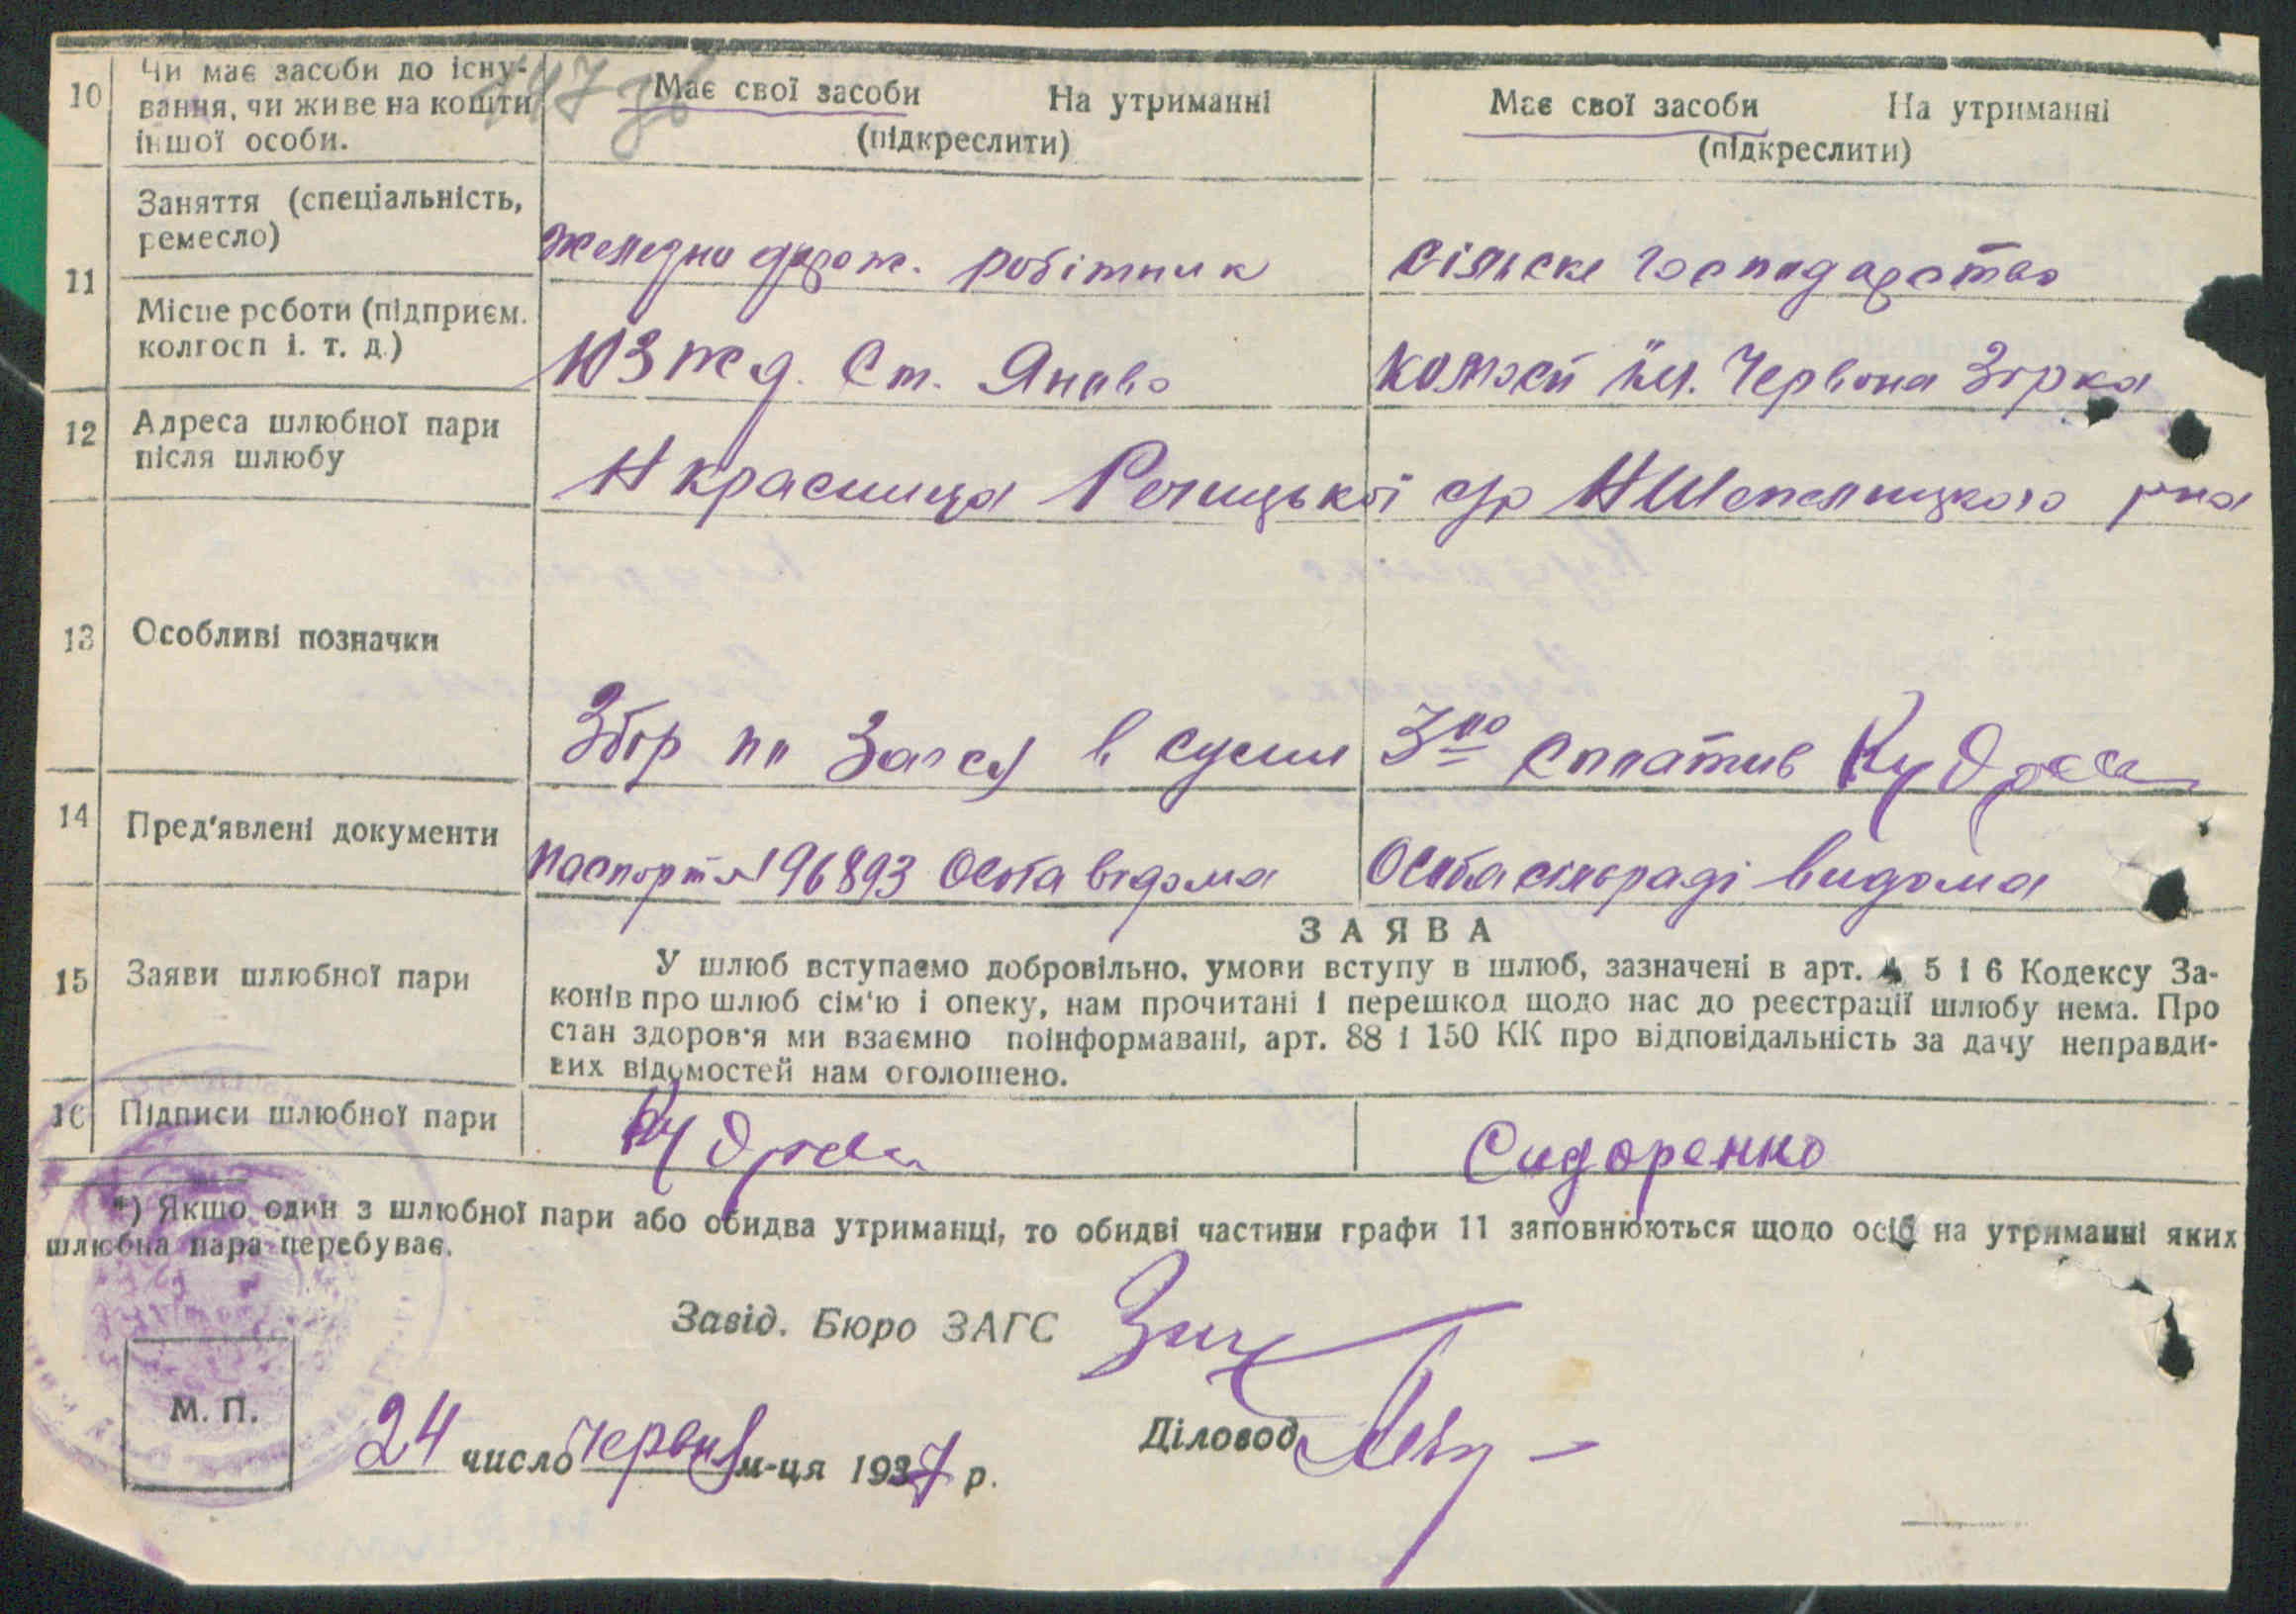 10 Чи має засоби до існу-
вання, чи живе на кошти
іншої особи.
Має свої засоби На утриманні
(підкреслити)
Має свої засоби На утриманні
(підкреслити)
11 Заняття (спеціальність,
ремесло)
железно дорож. робітник
сільске господарство
Місце роботи (підприєм.
колгосп і. т. д.)
ЮЗ жд. Ст. Яново
колгосп ім. Червона Зорка
12 Адреса шлюбної пари
після шлюбу
Н красница Речицької с/р НШепелицкого рна
13 Особливі позначки
Збор по Загсу в сумі 3 00 сплатив
14 Пред'явлені документи
паспорт 196893 Особа відома
Особа сільраді видома
15 Заяви шлюбної пари
ЗАЯВА
У шлюб вступаємо добровільно, умови вступу в шлюб, зазначені в арт. 4 5 і 6 Кодексу За-
конів про шлюб сім'ю і опеку, нам прочитані і перешкод щодо нас до реєстрації шлюбу нема. Про
стан здоров'я ми взаємно поінформавані, арт. 88 і 150 КК про відповідальність за дачу неправди-
вих відомостей нам оголошено.
16 Підписи шлюбної пари
Сидоренко
*) Якщо один з шлюбної пари або обидва утриманці, то обидві частини графи 11 заповнюються щодо осіб на утриманні яких
шлюбна пара перебуває.
Завід. Бюро ЗАГС
М. П.
Діловод
24 число червня м-ця 1937 р.